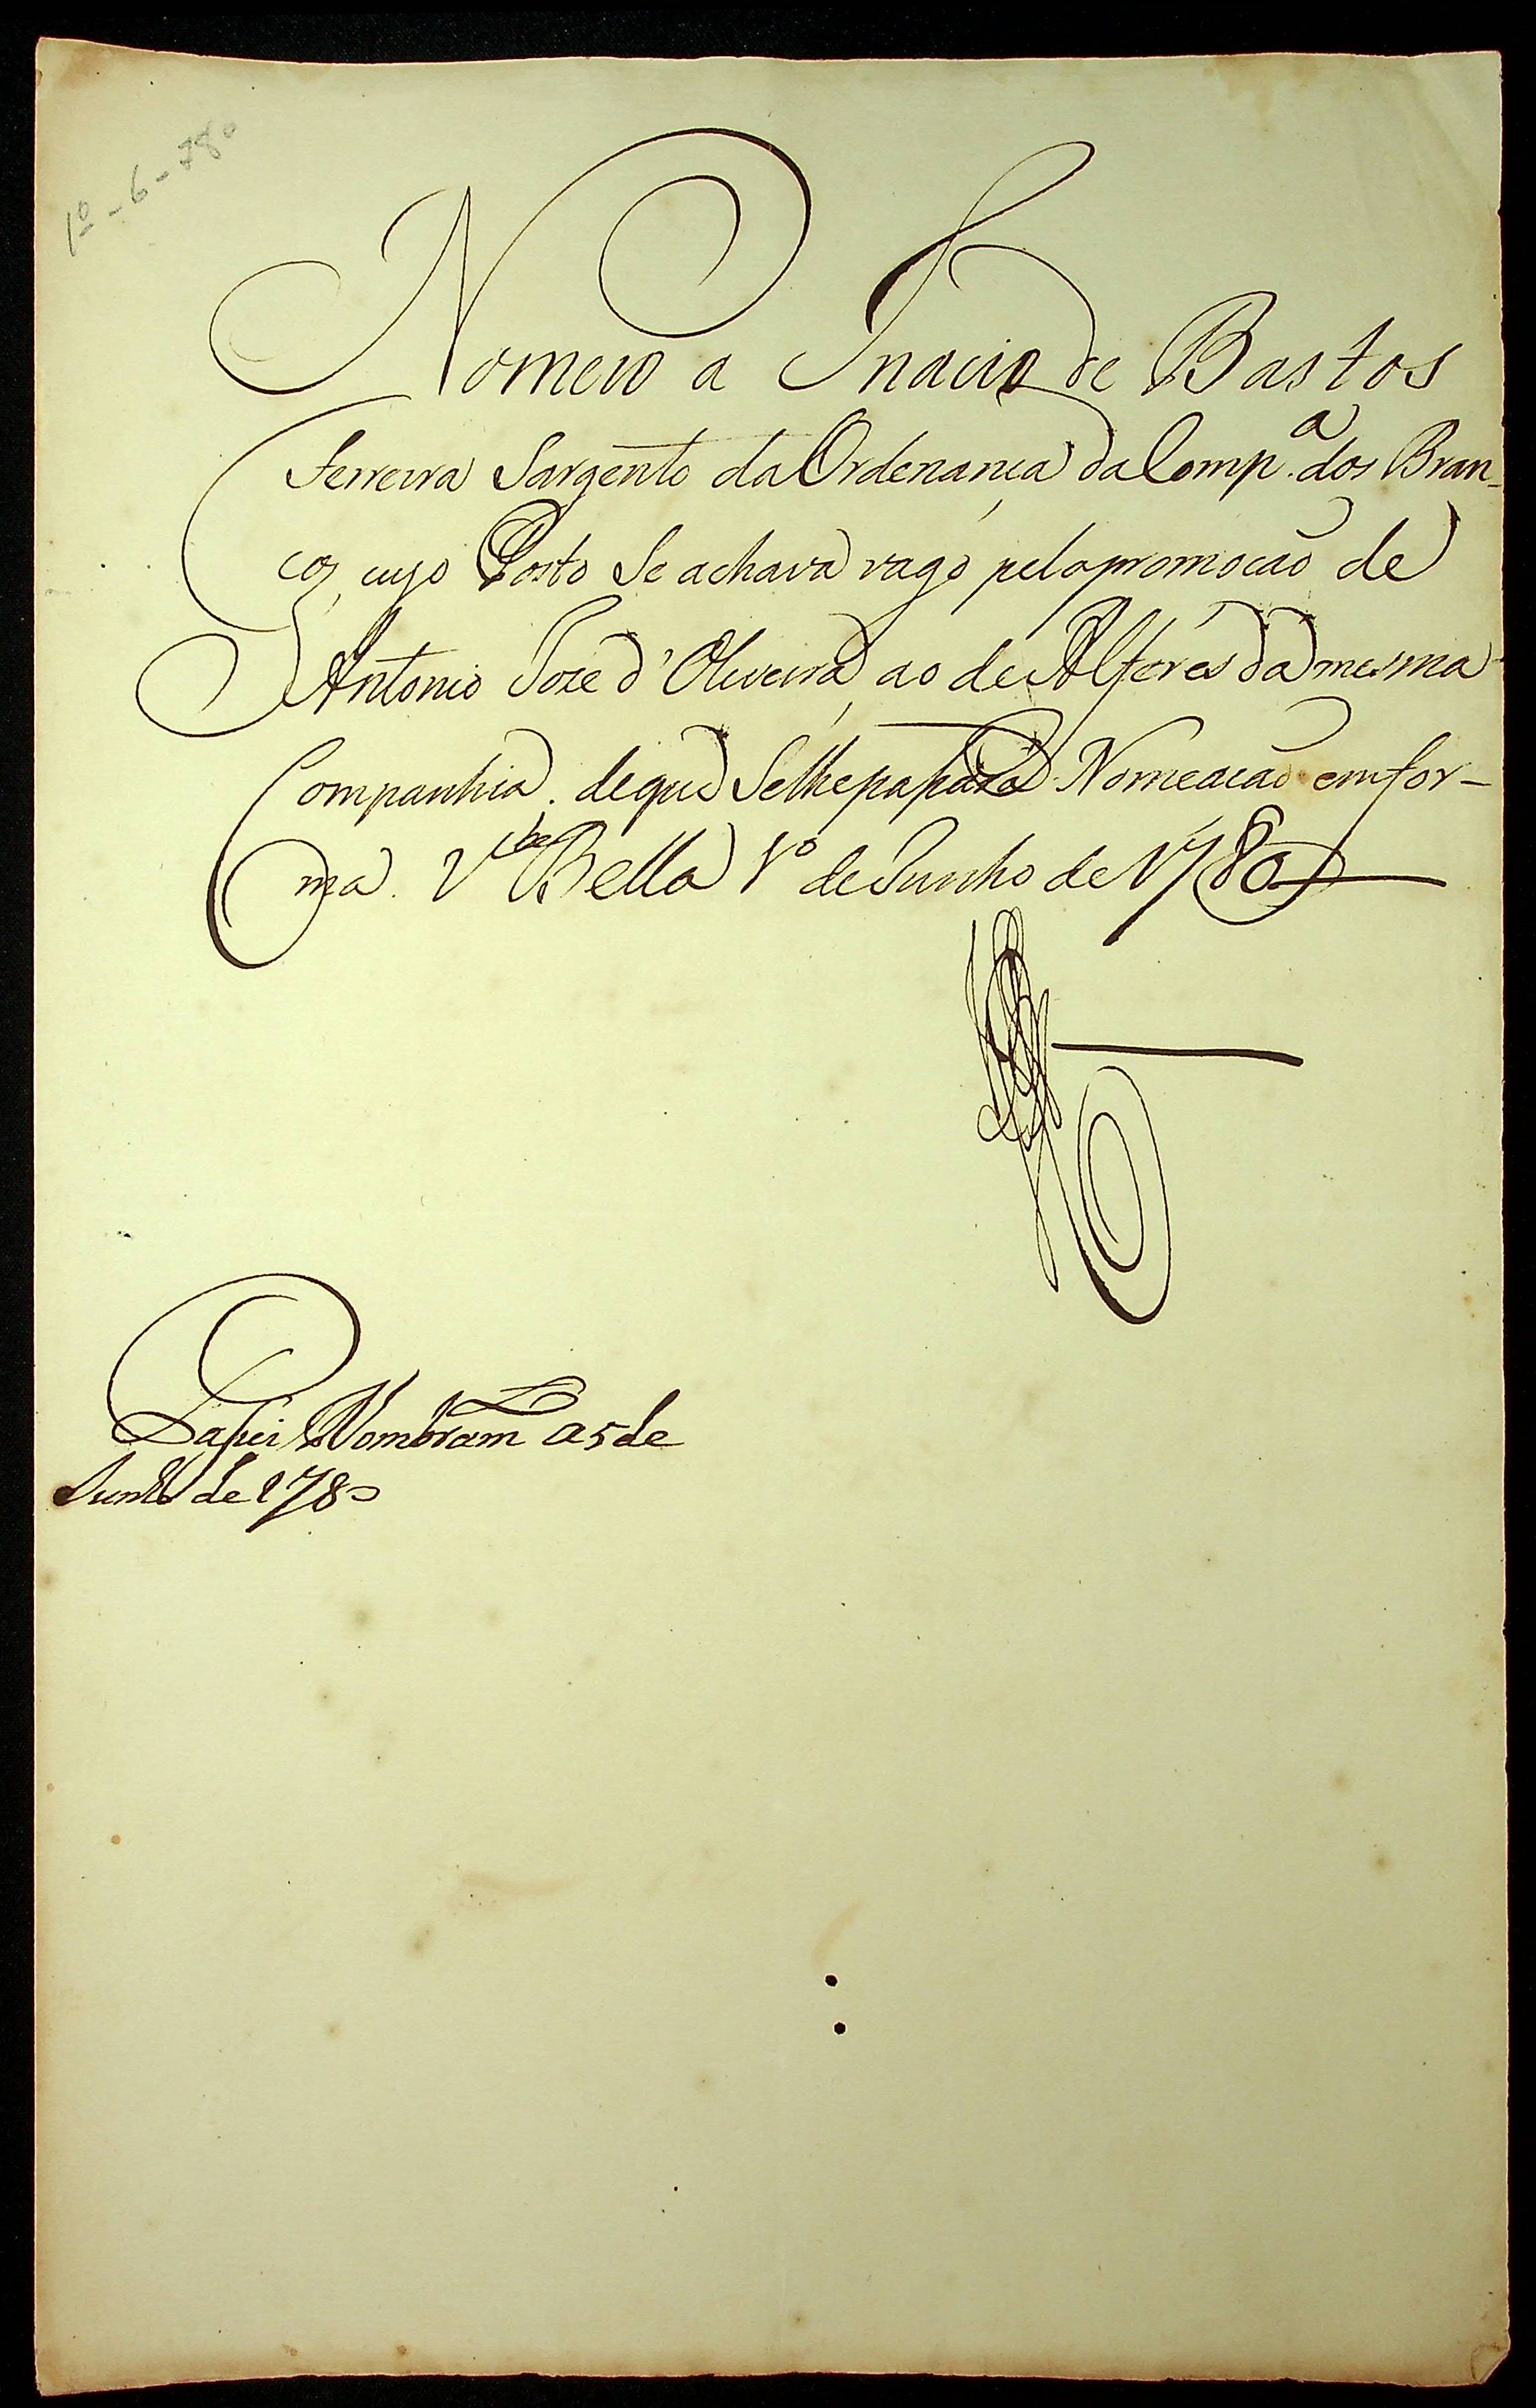 1º-6-780
Nomeio a Inacio de Bastos
Ferreira Sargento da Ordenança da Comp.ª dos Bran-
cos, cujo Posto Se achava vago pela promoção de
Antonio Joze d'Oliveira, ao de Alferes da mesma
Companhia. de que Selhe pasará Nomeação em for-
ma. V.ª Bella 1º de Junho de 1780
Nombram a 5 de
Junho de 1780